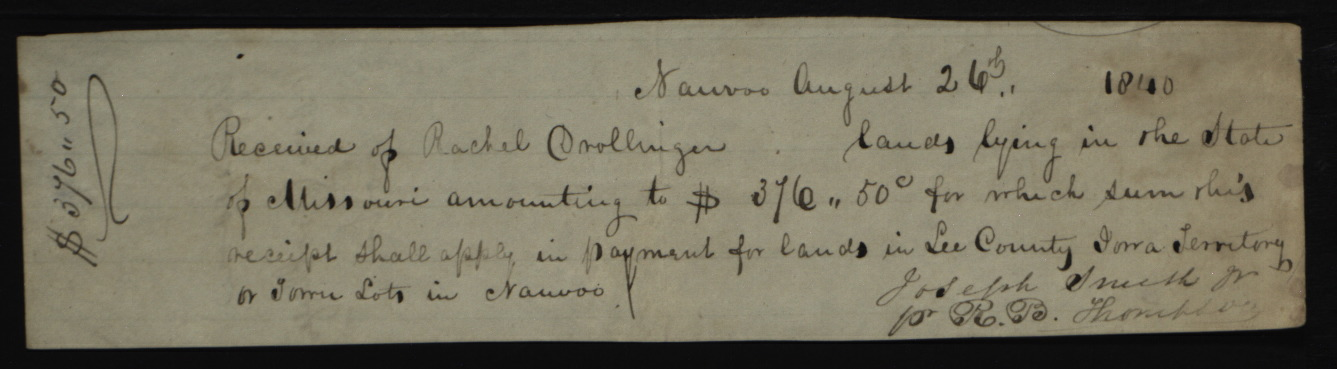 $376 " 50
Nauvoo August 26th., 1840
Received of Rachel Drollinger . lands lying in the State
of Missouri amounting to $ 376 " 50c for which sum this
receipt shall apply in payment for lands in Lee County Iowa Territory
or Town Lots in Nauvoo
Joseph Smith Jr
pr R. B. Thompson